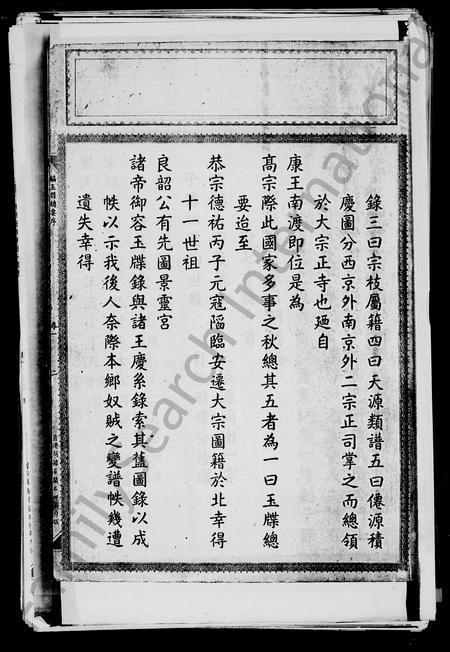 錄三曰宗枝屬籍四曰天源類譜五曰僊源積
慶圖分西京外南京外二宗正司掌之而總領
於大宗正寺也廼自
康王南渡即位是為
高宗際此國家多事之秋總其五者為一曰玉牒總
要迨至
恭宗德祐丙子元寇陷臨安遷大宗圖籍於北幸得
十一世祖
良韶公有先圖景靈宮
諸帝御容玉牒錄與諸王慶系錄索其舊圖錄以成
帙以示我後人奈際本鄉奴賊之變譜帙幾遭
遺失幸得
FamilySearch International